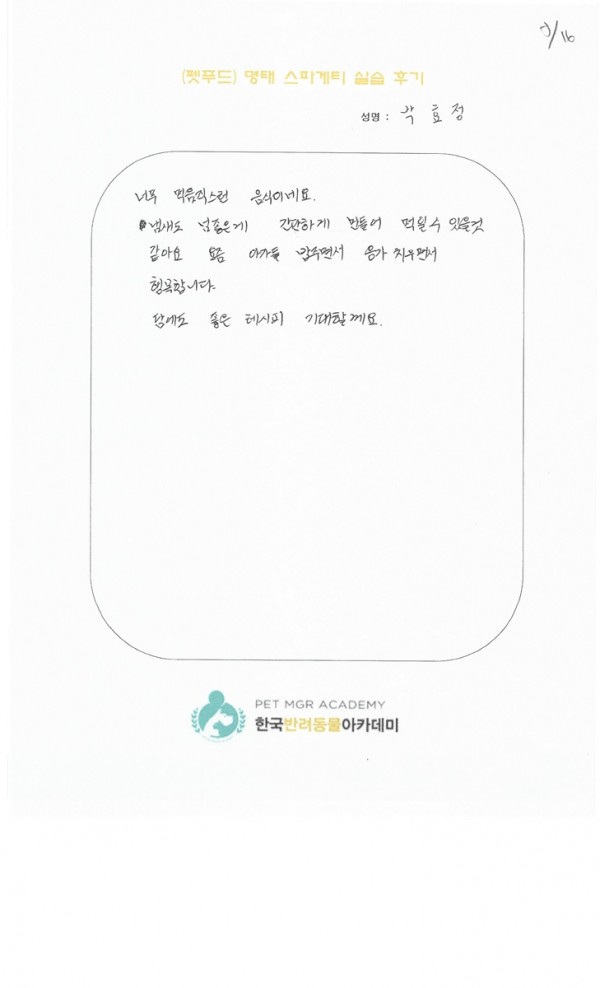 9/16
(펫푸드) 명태 스파게티 실습 후기
성명 : 곽효정
너무 먹음직스런 음식이네요.
냄새도 넘좋은게 간단하게 만들어 먹일수 있을것
같아요 요즘 아가들 밥주면서 응가 치우면서
행복합니다.
담에도 좋은 레시피 기대할께요.
PET MGR ACADEMY
한국반려동물아카데미